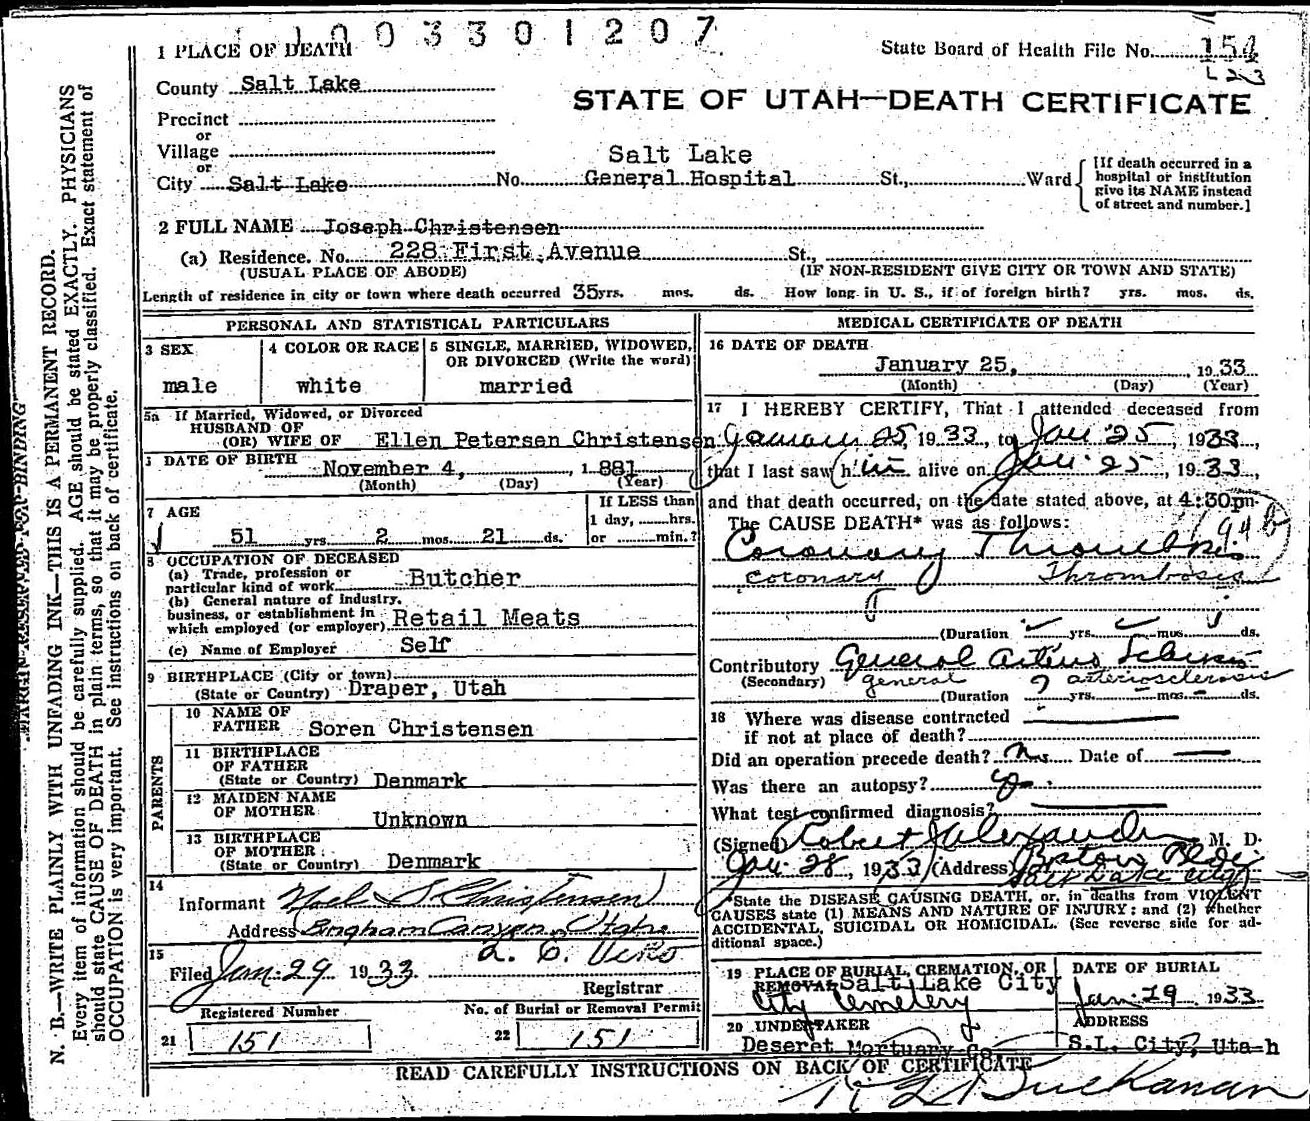 1003301207
State Board of Health File No. 154
L 23
STATE OF UTAH—DEATH CERTIFICATE
1 PLACE OF DEATH
County Salt Lake
Precinct
or
Village
or
City Salt Lake No. Salt Lake General Hospital St., Ward
[If death occurred in a hospital or institution give its NAME instead of street and number.]
2 FULL NAME Joseph Christensen
(a) Residence. No. 228 First Avenue St.,
(USUAL PLACE OF ABODE) (IF NON-RESIDENT GIVE CITY OR TOWN AND STATE)
Length of residence in city or town where death occurred 35 yrs. mos. ds. How long in U. S., if of foreign birth? yrs. mos. ds.
PERSONAL AND STATISTICAL PARTICULARS
3 SEX
male
4 COLOR OR RACE
white
5 SINGLE, MARRIED, WIDOWED, OR DIVORCED (Write the word)
married
5a If Married, Widowed, or Divorced
HUSBAND OF
(OR) WIFE OF Ellen Petersen Christensen
DATE OF BIRTH
November 4, 1881
(Month) (Day) (Year)
7 AGE
51 yrs. 2 mos. 21 ds.
If LESS than
1 day, hrs.
or min.?
8 OCCUPATION OF DECEASED
(a) Trade, profession or
particular kind of work Butcher
(b) General nature of industry,
business, or establishment in
which employed (or employer) Retail Meats
(c) Name of Employer Self
9 BIRTHPLACE (City or town)
(State or Country) Draper, Utah
PARENTS
10 NAME OF
FATHER Soren Christensen
11 BIRTHPLACE
OF FATHER
(State or Country) Denmark
12 MAIDEN NAME
OF MOTHER Unknown
13 BIRTHPLACE
OF MOTHER
(State or Country) Denmark
14
Informant Noel S Christensen
Address Bingham Canyon, Utah
15
Filed Jan. 29 1933.
Registrar
Registered Number
21 151
No. of Burial or Removal Permit
22 151
MEDICAL CERTIFICATE OF DEATH
16 DATE OF DEATH
January 25, 1933
(Month) (Day) (Year)
17 I HEREBY CERTIFY, That I attended deceased from
January 25 1933, to Jan 25, 1933,
that I last saw him alive on Jan. 25, 1933,
and that death occurred, on the date stated above, at 4:30pm
The CAUSE DEATH* was as follows:
94b
Coronary Thrombosis
coronary Thrombosis
(Duration yrs. mos. ds.
Contributory General Arterio Sclerosis
(Secondary) general arteriosclerosis
(Duration ? yrs. mos. ds.
18 Where was disease contracted
if not at place of death?
Did an operation precede death? Date of
Was there an autopsy?
What test confirmed diagnosis?
(Signed) Robert J Alexander M. D.
Jan. 28, 1933 (Address) Boston Bldg
Salt Lake City
*State the DISEASE CAUSING DEATH, or, in deaths from VIOLENT
CAUSES state (1) MEANS AND NATURE OF INJURY; and (2) whether
ACCIDENTAL, SUICIDAL OR HOMICIDAL. (See reverse side for additional space.)
19 PLACE OF BURIAL, CREMATION, OR
REMOVAL Salt Lake City
City Cemetery
DATE OF BURIAL
Jan. 29 1933
20 UNDERTAKER
Deseret Mortuary Co
ADDRESS
S.L. City, Utah
READ CAREFULLY INSTRUCTIONS ON BACK OF CERTIFICATE
Buchanan
MARGIN RESERVED FOR BINDING
N. B.—WRITE PLAINLY WITH UNFADING INK—THIS IS A PERMANENT RECORD.
Every item of information should be carefully supplied. AGE should be stated EXACTLY. PHYSICIANS
should state CAUSE OF DEATH in plain terms, so that it may be properly classified. Exact statement of
OCCUPATION is very important. See instructions on back of certificate.